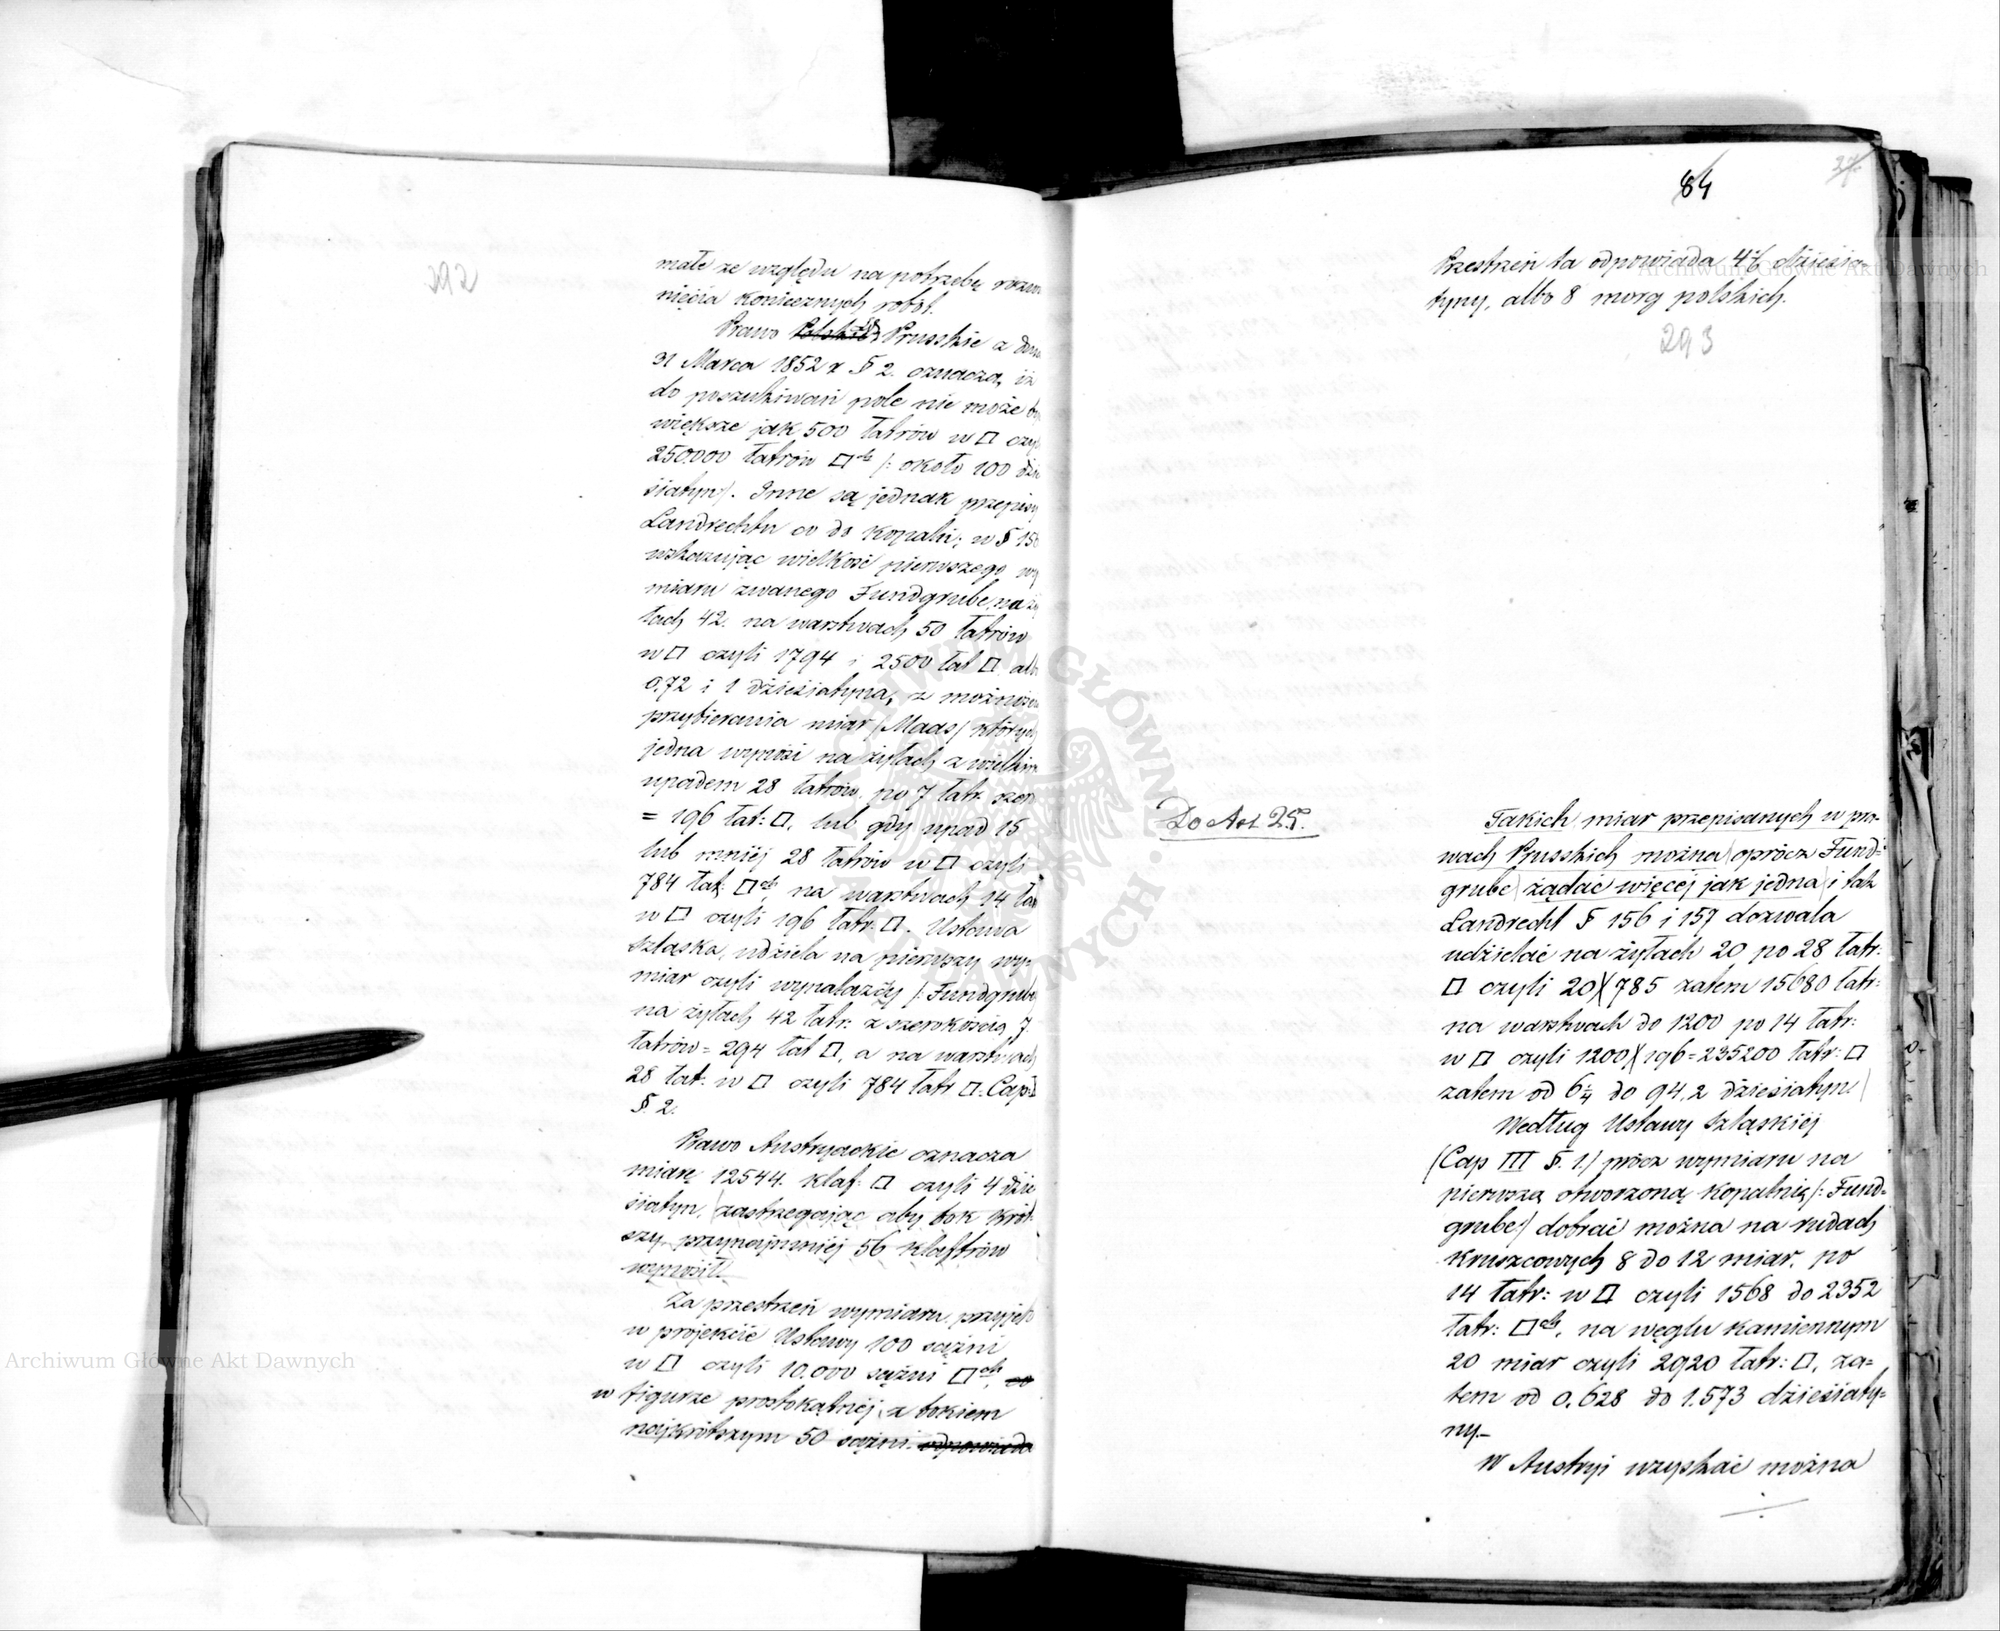 292
małe ze względu na potrzebę rozwi
nięcia koniecznych robót.
Prawo Polskie Prusskie z dnia
31 Marca 1852 r § 2. oznacza, iż
do poszukiwań pole nie może by
większe jak 500 łatrów w □ czyli
250.000 łatrów □ch /: około 100 dzie
siatyn/. Inne są jednak przepisy
Landrechtu co do kopalń; w § 156
wskazując wielkość pierwszego wy
miaru zwanego Fundgrube, na ży
łach 42. na warstwach 50 łatrów
w □ czyli 1794 i 2500 łat □ albo
0.72 i 1 dziesiatyna, z możnością
przybierania miar /Maas/ których
jedna wynosi na żyłach z wielkim
upadem 28 łatrów po 7 łatr. szer
= 196 łat: □, lub gdy upad 15
lub mniéj 28 łatrów w □ czyli
784 łat; □ch, na warstwach 14 łat
w □ czyli 196 łatr: □. Ustawa
szląska, udziela na pierwszy wy-
miar czyli wynalazczy /: Fundgrube
na żyłach 42 łatr: z szerokością 7.
łatrów = 294 łat □, a na warstwach
28 łat: w □ czyli 784 łatr □. Cap.
§. 2.
Prawo Austryackie oznacza
miarę 12544. klaf: □ czyli 4 dzie
siatyn, zastrzegając aby bok krót-
szy, przynajmniéj 56 klaftrów
wynosił.
Za przestrzeń wymiaru przyjęto
w projekcie Ustawy 100 sążni
w □ czyli 10.000 sążni □ch, co
w figurze prostokątnéj, z bokiem
najkrótszym 50 sążni. odpowiada
84
37
Przestrzeń ta odpowiada 4 1/6 dziesia-
tyny, albo 8 morg polskich.
293
Do Art 25.
Takich miar przepisanych w pra-
wach Prusskich można oprócz Fund=
grube żądać więcéj jak jedna i tak
Landrecht § 156 i 157 dozwala
udzielać na żyłach 20 po 28 łatr:
□ czyli 20)(785 zatem 15680 łatr:
na warstwach do 1200 po 14 łatr:
w □ czyli 1200)(196=235200 łatr: □
zatem od 6 1/4 do 94,2 dziesiatyn.
Według Ustawy szląskiéj
(Cap III §. 1.) prócz wymiaru na
pierwszą otworzoną kopalnię /: Fund=
grube/ dobrać można na rudach
kruszcowych 8 do 12 miar, po
14 łatr: w □ czyli 1568 do 2352
łatr: □ch, na węglu kamiennym
20 miar czyli 2920 łatr: □, za=
tem od 0,628 do 1.573 dziesiaty=
ny.—
W Austryi uzyskać można
Archiwum Główne Akt Dawnych
Archiwum Główne Akt Dawnych
ARCHIWUM GŁÓWNE AKT DAWNYCH